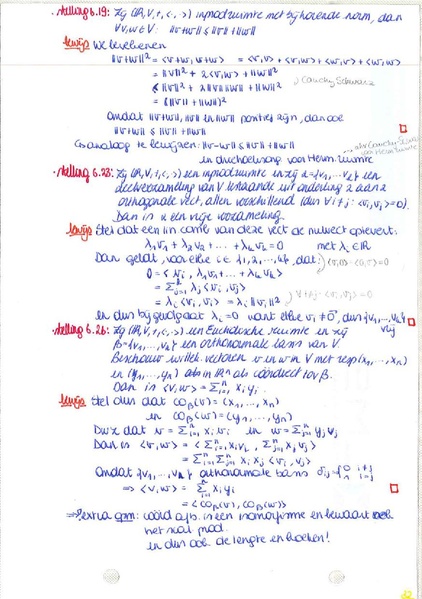 stelling 6.19: Zij (ℝ,V,+,<,>) inproductruimte met bijhorende norm, dan
∀v,w∈V: ||v+w|| ≤ ||v|| + ||w||
bewijs We berekenen
||v+w||² = <v+w, v+w> = <v,v> + <v,w> + <w,v> + <w,w>
= ||v||² + 2<v,w> + ||w||²
) Cauchy Schwarz
≤ ||v||² + 2||v|| ||w|| + ||w||²
= (||v|| + ||w||)²
Omdat ||v+w||, ||v|| en ||w|| positief zijn, dan ook
||v+w|| ≤ ||v|| + ||w||
analoog te bewijzen: ||v-w|| ≤ ||v|| + ||w||
en driehoeksong voor Herm. ruimte
stelling 6.23: Zij (ℝ,V,+,<,>) een inproductruimte en zij {v₁,...,vₖ} een
deelverzameling van V bestaande uit onderling 2 aan 2
orthogonale vect, allen verschillend (dus ∀i≠j: <vᵢ,vⱼ>=0).
Dan is een vrije verzameling.
bewijs Stel dat een lin comb van deze vect de nulvect oplevert:
λ₁v₁ + λ₂v₂ + ... + λₖvₖ = 0 met λᵢ∈ℝ
Dan geldt, voor elke i∈{1,2,...,k}, dat:
0 = <vᵢ, λ₁v₁ + ... + λₖvₖ>
= Σⱼ₌₁ᵏ λⱼ <vᵢ,vⱼ>
= λᵢ <vᵢ,vᵢ> = λᵢ ||vᵢ||²
) ∀i≠j: <vᵢ,vⱼ>=0
en dus bijgevolg λᵢ = 0 want elke vᵢ ≠ 0, dus {v₁,...,vₖ}
vrij
stelling 6.26: Zij (ℝ,V,+,<,>) een Euclidische ruimte en zij
β={v₁,...,vₙ} een orthonormale basis van V.
Beschouw willek vectoren v en w in V met resp (x₁,...,xₙ)
en (y₁,...,yₙ) als in ℝⁿ als coördvect tov β.
Dan is <v,w> = Σᵢ₌₁ⁿ xᵢyᵢ
bewijs Stel dus dat co_β(v) = (x₁,...,xₙ)
en co_β(w) = (y₁,...,yₙ)
Dwz dat v = Σᵢ₌₁ⁿ xᵢvᵢ en w = Σⱼ₌₁ⁿ yⱼvⱼ
Dan is <v,w> = <Σᵢ₌₁ⁿ xᵢvᵢ, Σⱼ₌₁ⁿ yⱼvⱼ>
= Σᵢ₌₁ⁿ Σⱼ₌₁ⁿ xᵢ yⱼ <vᵢ,vⱼ>
Omdat {v₁,...,vₙ} orthonormale basis δᵢⱼ = {0 i≠j
1 i=j
⇒ <v,w> = Σᵢ₌₁ⁿ xᵢyᵢ
= <co_β(v), co_β(w)>
⇒ extra opm: coörd afb. is een isomorfisme en bewaart ook
het scal prod.
en dus ook de lengte en hoeken!